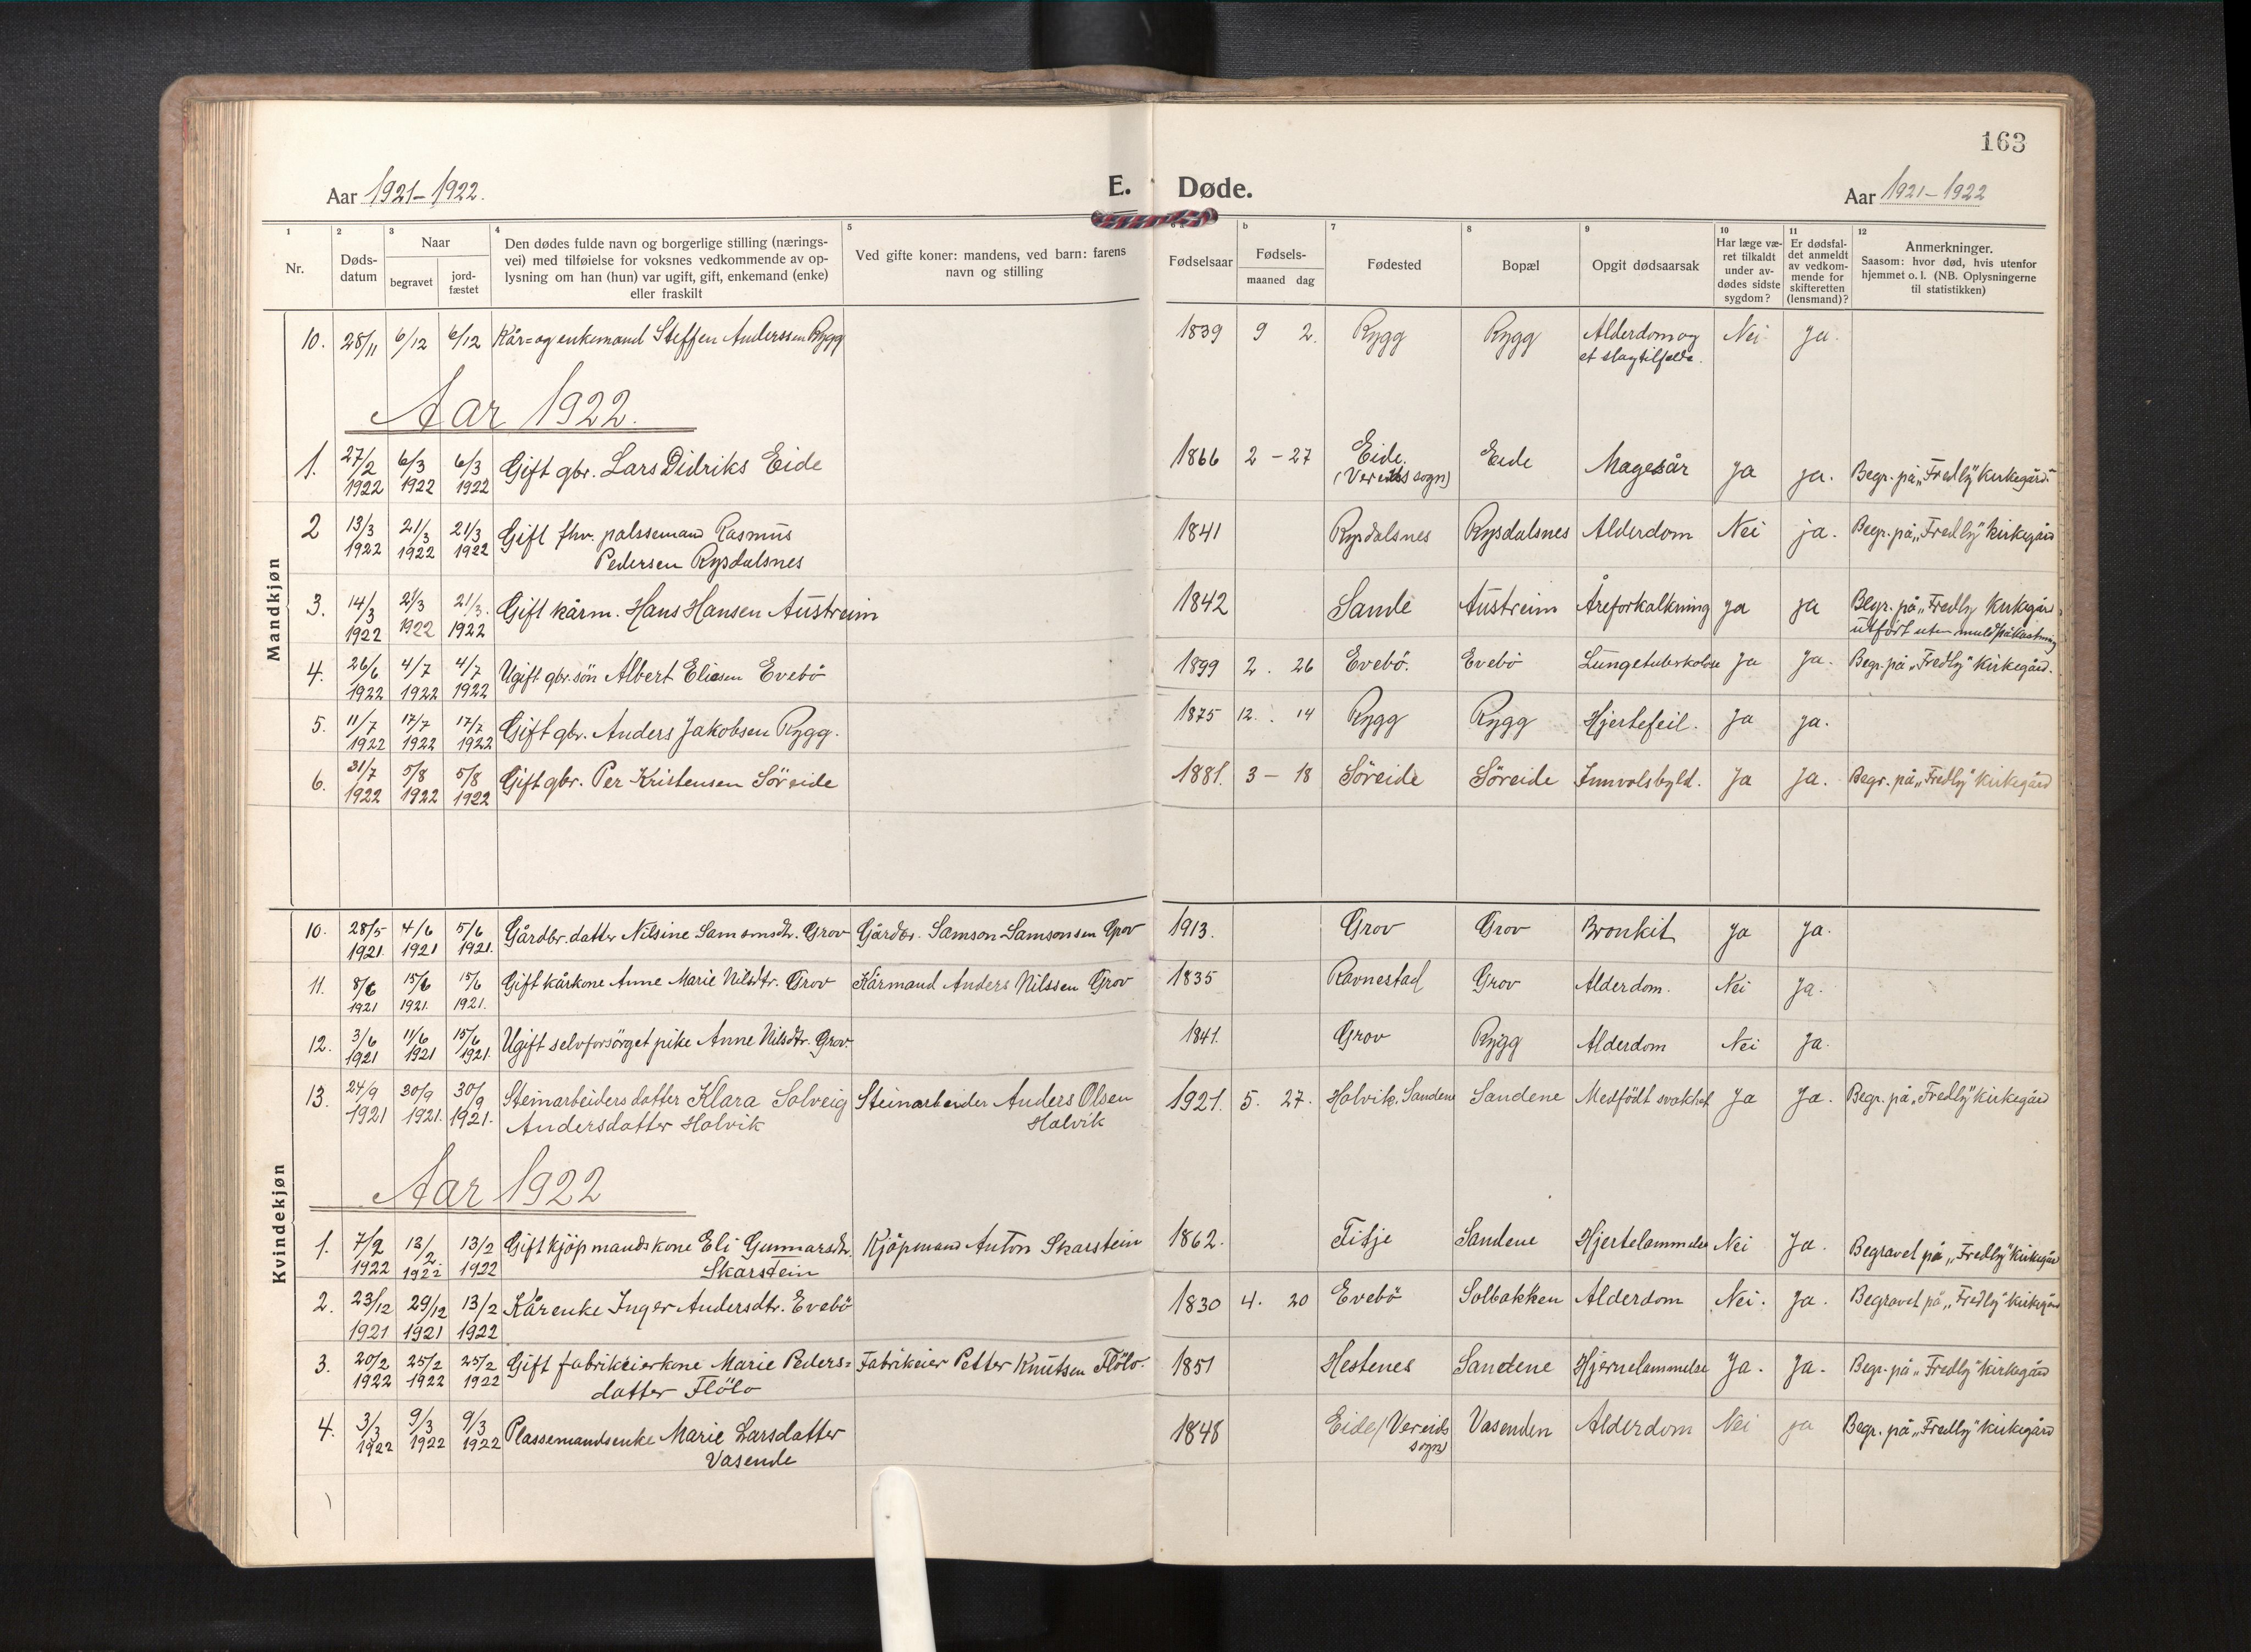 163
Aar 1921-1922.
E. Døde.
Aar 1921-1922
1 2 3 4 5 b 7 8 9 10 11 12
Nr.
Døds-
datum
Naar
begravet
jord-
fæstet
Den dødes fulde navn og borgerlige stilling (nærings-
vei) med tilføielse for voksnes vedkommende av op-
lysning om han (hun) var ugift, gift, enkemand (enke)
eller fraskilt
Ved gifte koner: mandens, ved barn: farens
navn og stilling
Fødselsaar
Fødsels-
maaned dag
Fødested
Bopæl
Opgit dødsaarsak
Har læge væ-
ret tilkaldt
under av-
dødes sidste
sygdom?
Er dødsfal-
det anmeldt
av vedkom-
mende for
skifteretten
(lensmand)?
Anmerkninger.
Saasom: hvor død, hvis utenfor
hjemmet o. l. (NB. Oplysningerne
til statistikken)
Mandkjøn
10. 28/11 6/12 6/12 Kår= og enkemand Steffen Anderssen Rygg 1839 9 2. Rygg Rygg Alderdom og Nei Ja.
et slagtilfelde.
Aar 1922.
1. 27/2 6/3 6/3 Gift gbr. Lars Didriks Eide 1866 2 - 27 Eide. Eide Magesår Ja ja. Begr. på „Fredly" kirkegård.
1922 1922 1922 (Vereids sogn)
2 13/3 21/3 21/3 Gift fhv. palssemand Rasmus 1841 Rysdalsnes Rysdalsnes Alderdom Nei ja. Begr. på „Fredly" kirkegård
1922 1922 1922 Pedersen Rysdalsnes
3. 14/3 21/3 21/3. Gift kårm. Hans Hansen Austreim 1842 Sande Austreim Åreforkalkning ja ja Begr. på „Fredly kirkegård
1922 1922 1922 utført uten muldpåkastning
4. 26/6 4/7 4/7 Ugift gbr. søn Albert Eliasen Evebö 1899 2. 26 Evebö. Evebö Lungetuberkolose Ja Ja. Begr. på „Fredly" kirkegård.
1922 1922 1922
5. 11/7 17/7 17/7 Gift gbr. Anders Jakobsen Rygg. 1875 12. 14 Rygg Rygg Hjertefeil. Ja ja.
1922 1922 1922
6. 31/7 5/8 5/8 Gift gbr. Per Kristensen Söreide 1881. 3 - 18 Söreide Söreide Innvolsbyld. Ja Ja. Begr. på „Fredly" kirkegård
1922 1922 1922
Kvindekjøn
10. 28/5 4/6 5/6 Gårdbr. datter Nilsine Samsonsdtr. Grov Gårdbr. Samson Samsonsen Grov 1913. Grov Grov Bronkit Ja Ja.
1921. 1921 1921.
11. 8/6 15/6 15/6 Gift kårkone Anne Marie Nilsdtr. Grov Kårmand Anders Nilssen Grov 1835 Ravnestad Grov Alderdom. Nei Ja.
1921 1921. 1921.
12. 3/6 11/6 15/6 Ugift selvforsörget pike Anne Nilsdtr. Grov. 1841. Grov Rygg Alderdom Nei Ja.
1921 1921 1921.
13. 24/9 30/9 30/9 Steinarbeiders datter Klara Solveig Steinarbeider Anders Olsen 1921. 5. 27. Holvik, Sandene Sandene Medfödt svakhet Ja Ja. Begr. på „Fredly" kirkegård
1921 1921. 1921. Andersdatter Holvik Holvik
Aar 1922
1. 7/2 13/2 13/2 Gift kjöpmandskone Eli Gunnarsdtr. Kjöpmand Anton Skarstein 1862. Fitje Sandene Hjertelammelse Nei Ja. Begravet på „Fredly" kirkegård
1922 1922 1922 Skarstein
2. 23/12 29/12 13/2 Kårenke Inger Andersdtr. Evebö 1830 4. 20 Evebö Solbakken Alderdom Nei. Ja. Begravet på „Fredly" kirkegård
1921 1921 1922
3. 20/2 25/2 25/2 Gift fabrikeierkone Marie Peders= Fabrikeier Petter Knutsen Flölo. 1851 Hestenes Sandene Hjernelammelse Ja. Ja. Begr. på „Fredly" kirkegård
1922 1922 1922 datter Flölo
4. 3/3 9/3 9/3 Plassemandsenke Marie Larsdatter 1848 Eide (Vereids Vasenden Alderdom Nei ja Begr. på „Fredly" kirkegård
1922 1922 1922 Vasende sogn)